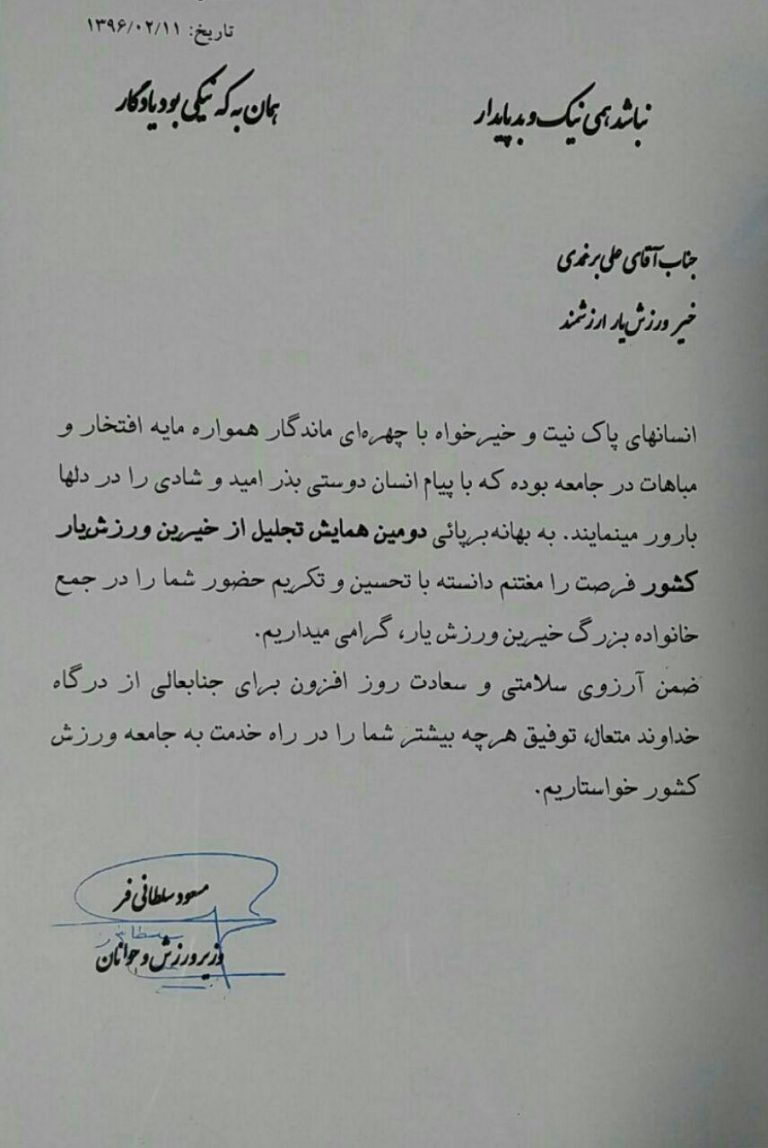 تاریخ: ۱۳۹۶/۰۲/۱۱
نباشد همی نیک و بد پایدار
همان به که نیکی بود یادگار
جناب آقای علی برغمدی
خیر ورزش‌یار ارزشمند
انسانهای پاک نیت و خیرخواه با چهره‌ای ماندگار همواره مایه افتخار و
مباهات در جامعه بوده که با پیام انسان دوستی بذر امید و شادی را در دلها
بارور مینمایند. به بهانه برپائی دومین همایش تجلیل از خیرین ورزش‌یار
کشور فرصت را مغتنم دانسته با تحسین و تکریم حضور شما را در جمع
خانواده بزرگ خیرین ورزش یار، گرامی میداریم.
ضمن آرزوی سلامتی و سعادت روز افزون برای جنابعالی از درگاه
خداوند متعال، توفیق هرچه بیشتر شما را در راه خدمت به جامعه ورزش
کشور خواستاریم.
مسعود سلطانی فر
وزیر ورزش و جوانان